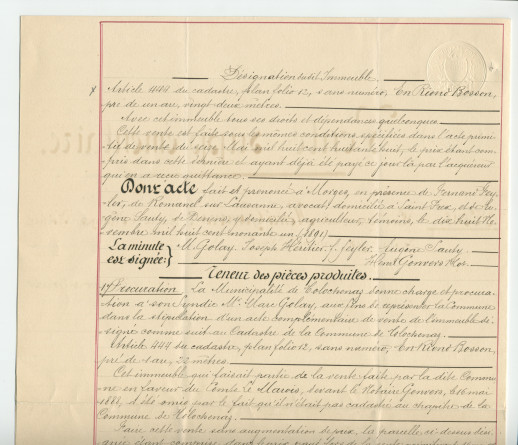 Désignation dudit Immeuble.
Article 449 du cadastre, plan folio 12, sans numéro, En Riond Bosson,
pré de un are, vingt deux mètres.
Avec cet immeuble tous ses droits et dépendances quelconques.
Cette vente est faite sous les mêmes conditions spécifiées dans l'acte primi-
tif de vente du seize Mai mil huit cent huitante huit, le prix étant com-
pris dans cette dernière et ayant déjà été payé ce jour là par l'acquéreur
qui en a reçu quittance.
Dont acte fait et prononcé à Morges, en présence de Fernand Fey-
ler, de Romanel sur Lausanne, avocat, domicilié à Saint Prex, et d'Eu-
gène Pauly, de Denens, y domicilié, agriculteur, témoins, le dix huit No-
vembre mil huit cent nonante un (1891)
La minute
est signée:
M. Golay, Joseph Héritier, F. Feyler, Eugène Pauly
Henri Gonvers Not.
Teneur des pièces produites.
1° Procuration. La Municipalité de Tolochenaz donne charge et procu-
ation à son syndic Mr Marc Golay, aux fins de représenter la Commune
dans la stipulation d'un acte complémentaire de vente de l'immeuble dé-
signé comme suit au Cadastre de la Commune de Tolochenaz.
Article 449 du cadastre, plan folio 12, sans numéro, En Riond Bosson,
pré de 1 are, 22 mètres.
Cet immeuble qui faisait partie de la vente faite par la dite Commu-
ne en faveur du Comte de Marois, devant le Notaire Gonvers, le 16 mai
1888, a été omis par le fait qu'il n'était pas cadastré au chapitre de la
Commune de Tolochenaz.
Faire cette vente sans augmentation de prix, la parcelle ci-dessus dési-